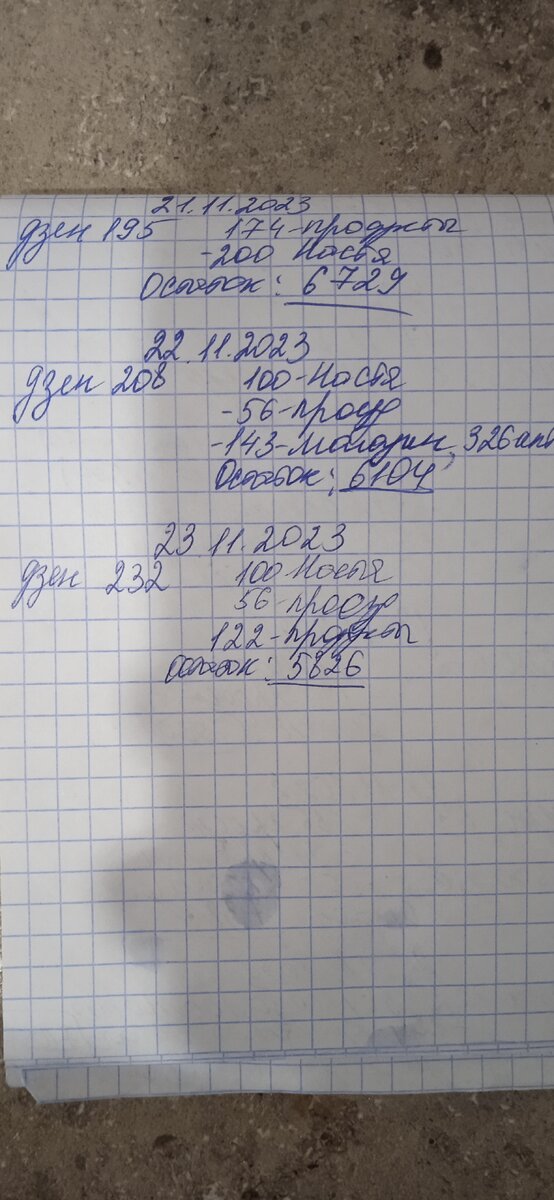 21.11.2023
дзен 195 174-продукты
-200 Настя
Остаток: 6729
22.11.2023
дзен 208 100-Настя
-56-проезд
-143-магазин, 326 апт
Остаток: 6104
23 11.2023
дзен 232 100-Настя
56-проезд
122-продукты
Остаток: 5826